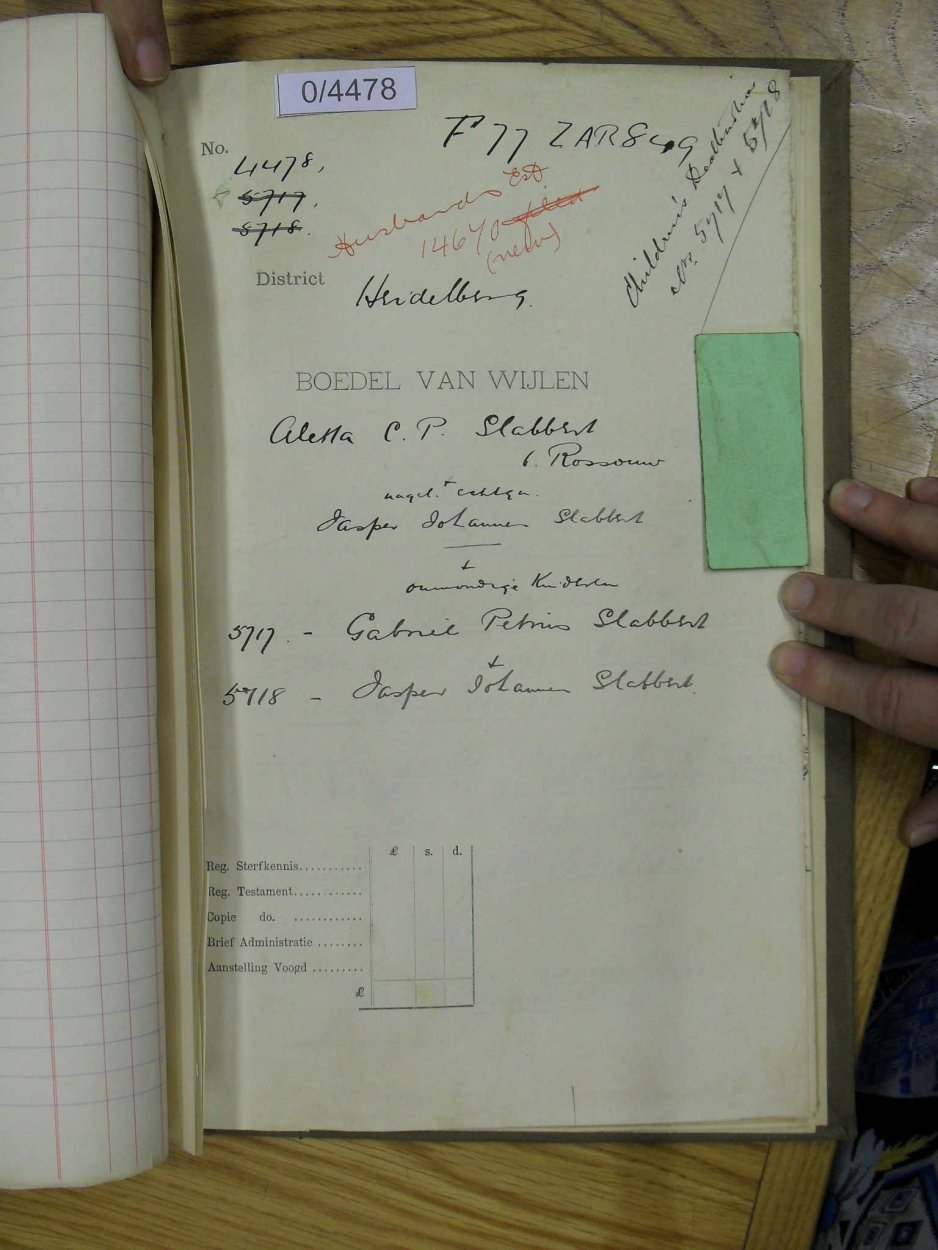 0/4478
No.
4478.
5717.
5718.
F 77 ZAR8
Husband's Est
14670 filed
(new)
Children's Death
No. 5717 + 5718
District
Heidelberg.
BOEDEL VAN WIJLEN
Aletta C. P. Slabbert
b. Rossouw
nagel. echtgen.
Jasper Johannes Slabbert
+
onmondige Kinderen
5717 - Gabriel Petrus Slabbert
+
5718 - Jasper Johannes Slabbert
£ s. d.
Reg. Sterfkennis...........
Reg. Testament............
Copie do. ............
Brief Administratie ........
Aanstelling Voogd .........
£